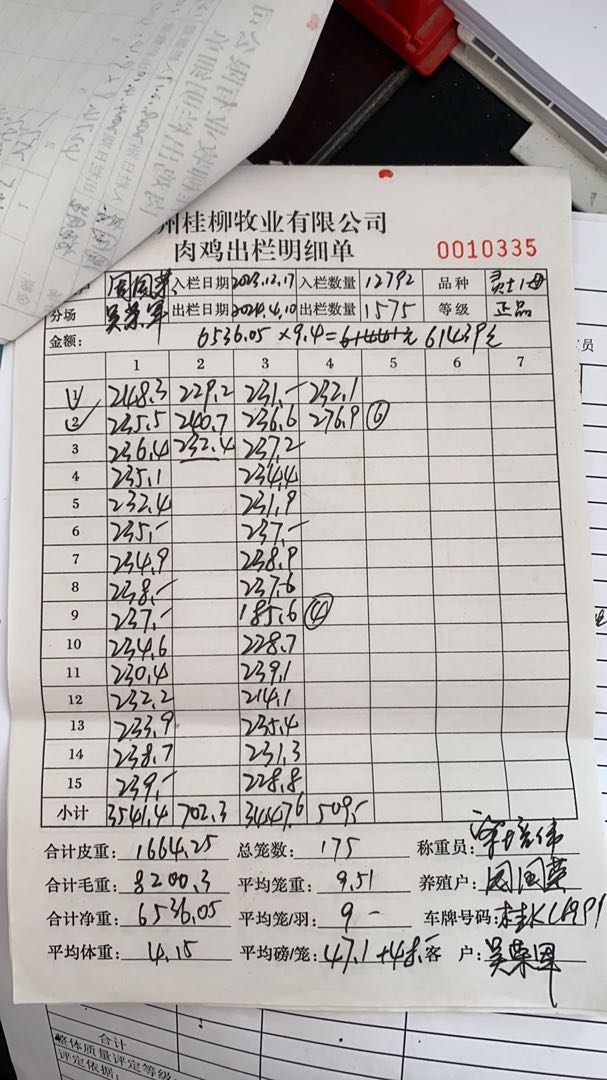 州桂柳牧业有限公司
肉鸡出栏明细单 0010335
周国荣 入栏日期 2023.12.17 入栏数量 12792 品种
分场 吴荣军 出栏日期 2024.4.10 出栏数量 1575 等级 正品
金额: 6536.05 ×9.4= 61439元
1 2 3 4 5 6 7
1 248.3 229.2 231.- 232.1
2 235.5 240.7 236.6 276.9 ⑥
3 236.4 232.4 237.2
4 235.1 234.4
5 232.4 231.9
6 235.- 237.-
7 234.9 238.9
8 238.- 237.6
9 237.- 185.6 ④
10 234.6 228.7
11 230.4 239.1
12 232.2 214.1
13 233.9 235.4
14 238.7 231.3
15 239.- 228.8
小计 3541.4 702.3 3447.6 509.-
合计皮重: 1664.25 总笼数: 175 称重员:
合计毛重: 8200.3 平均笼重: 9.51 养殖户: 周国荣
合计净重: 6536.05 平均笼/羽: 9 - 车牌号码:
平均体重: 4.15 平均磅/笼: 47.1+48.- 客 户:
员
合计
整体质量评定等级:
评定依据: